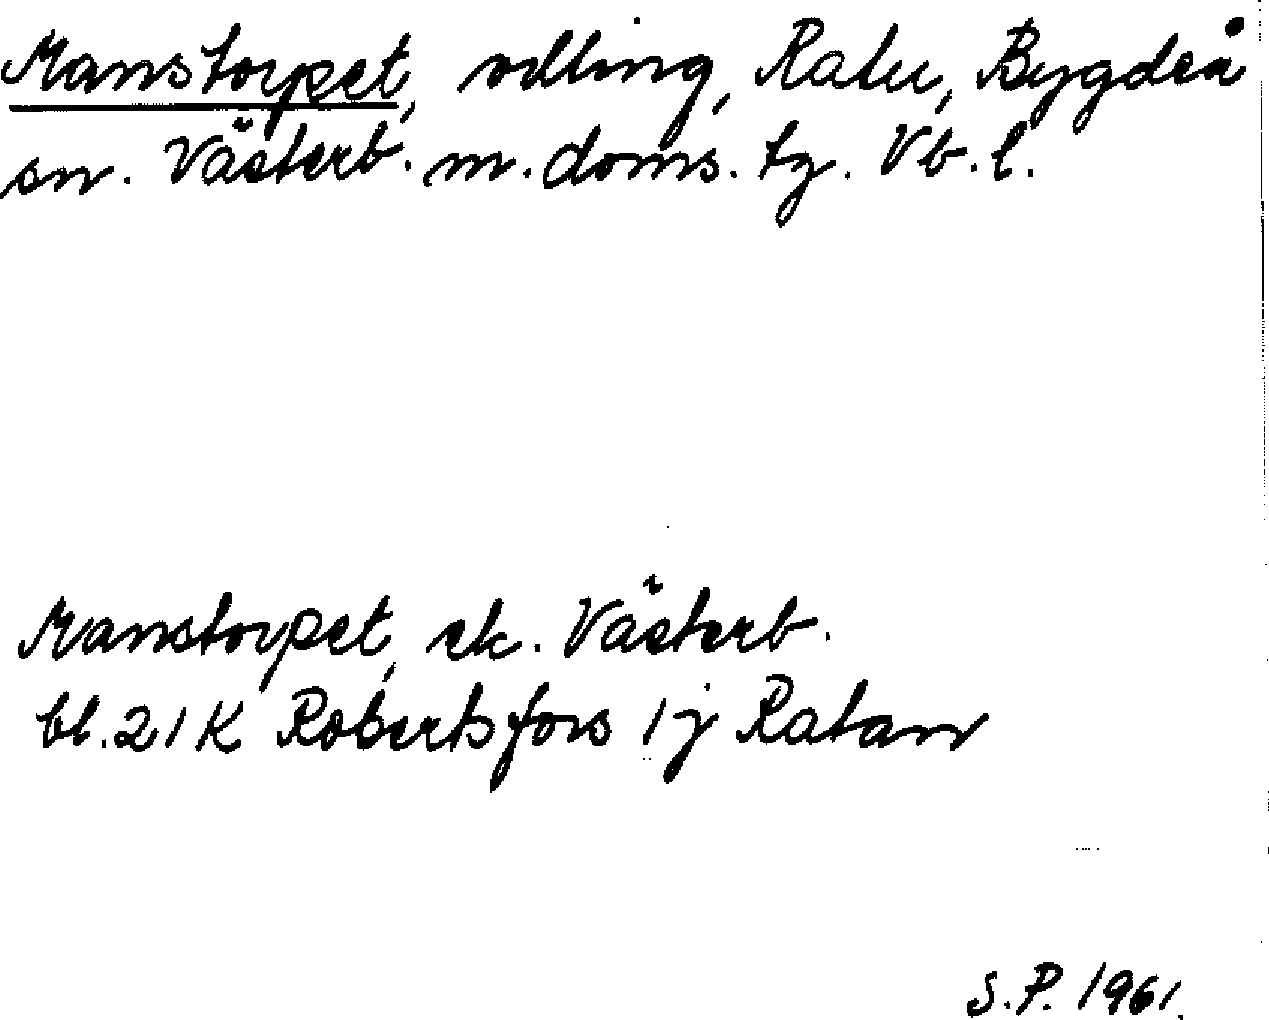 Manstorpet, odling, Ratu, Bygdeå
sn. Västerb. m. doms. tg. Vb. l.
Manstorpet, ek. Västerb.
bl. 21 K Robertsfors 1 j Ratan
S.P. 1961.